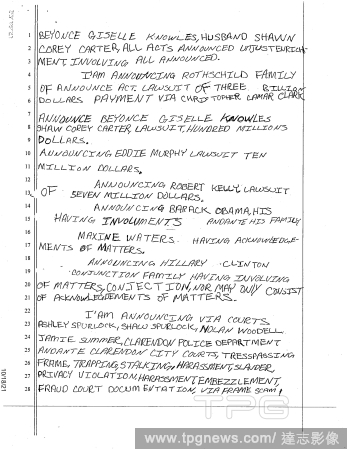 1 BEYONCE GISELLE KNOWLES, HUSBAND SHAWN
2 COREY CARTER, ALL ACTS ANNOUNCED UNJUST ENRICH-
3 MENT INVOLVING ALL ANNOUNCED.
4 I'AM ANNOUNCING ROTHSCHILD FAMILY
5 OF ANNOUNCE ACT. LAWSUIT OF THREE BILLION
6 DOLLARS PAYMENT VIA CHRISTOPHER LAMAR CLARK
7 ANNOUNCE BEYONCE GISELLE KNOWLES
8 SHAW COREY CARTER, LAWSUIT, HUNDRED MILLIONS
9 DOLLARS.
10 ANNOUNCING EDDIE MURPHY LAWSUIT TEN
11 MILLION DOLLARS.
12 ANNOUNCING ROBERT KELLY, LAWSUIT
13 OF SEVEN MILLION DOLLARS.
14 ANNOUNCING BARACK OBAMA, HIS
15 HAVING INVOLUMENTS ANDANTE HIS FAMILY
16 MAXINE WATERS. HAVING ACKNOWLEDGE-
17 MENTS OF MATTERS.
18 ANNOUNCING HILLARY CLINTON
19 CONJUNCTION FAMILY HAVING INVOLVING
20 OF MATTERS, CONJECTION, NOR MAY ONLY CONSIST
21 OF ACKNOWLEDEMENTS OF MATTERS.
22 I'AM ANNOUNCING VIA COURTS
23 ASHLEY SPURLOCK, SHAW SPURLOCK, NOLAN WOODELL.
24 JAMIE SUMMER, CLARENDON POLICE DEPARTMENT
25 ANDANTE CLARENDON CITY COURTS, TRESSPASSING
26 FRAME, TRAPPING, STALKING, HARASSMENT, SLANDER,
27 PRIVACY VIOLATION, HARASSMENT, EMBEZZLEMENT,
28 FRAUD COURT DOCUMENTATION, VIA FRAME SCAM,
10/18/21
TPG
www.tpgnews.com / 達志影像